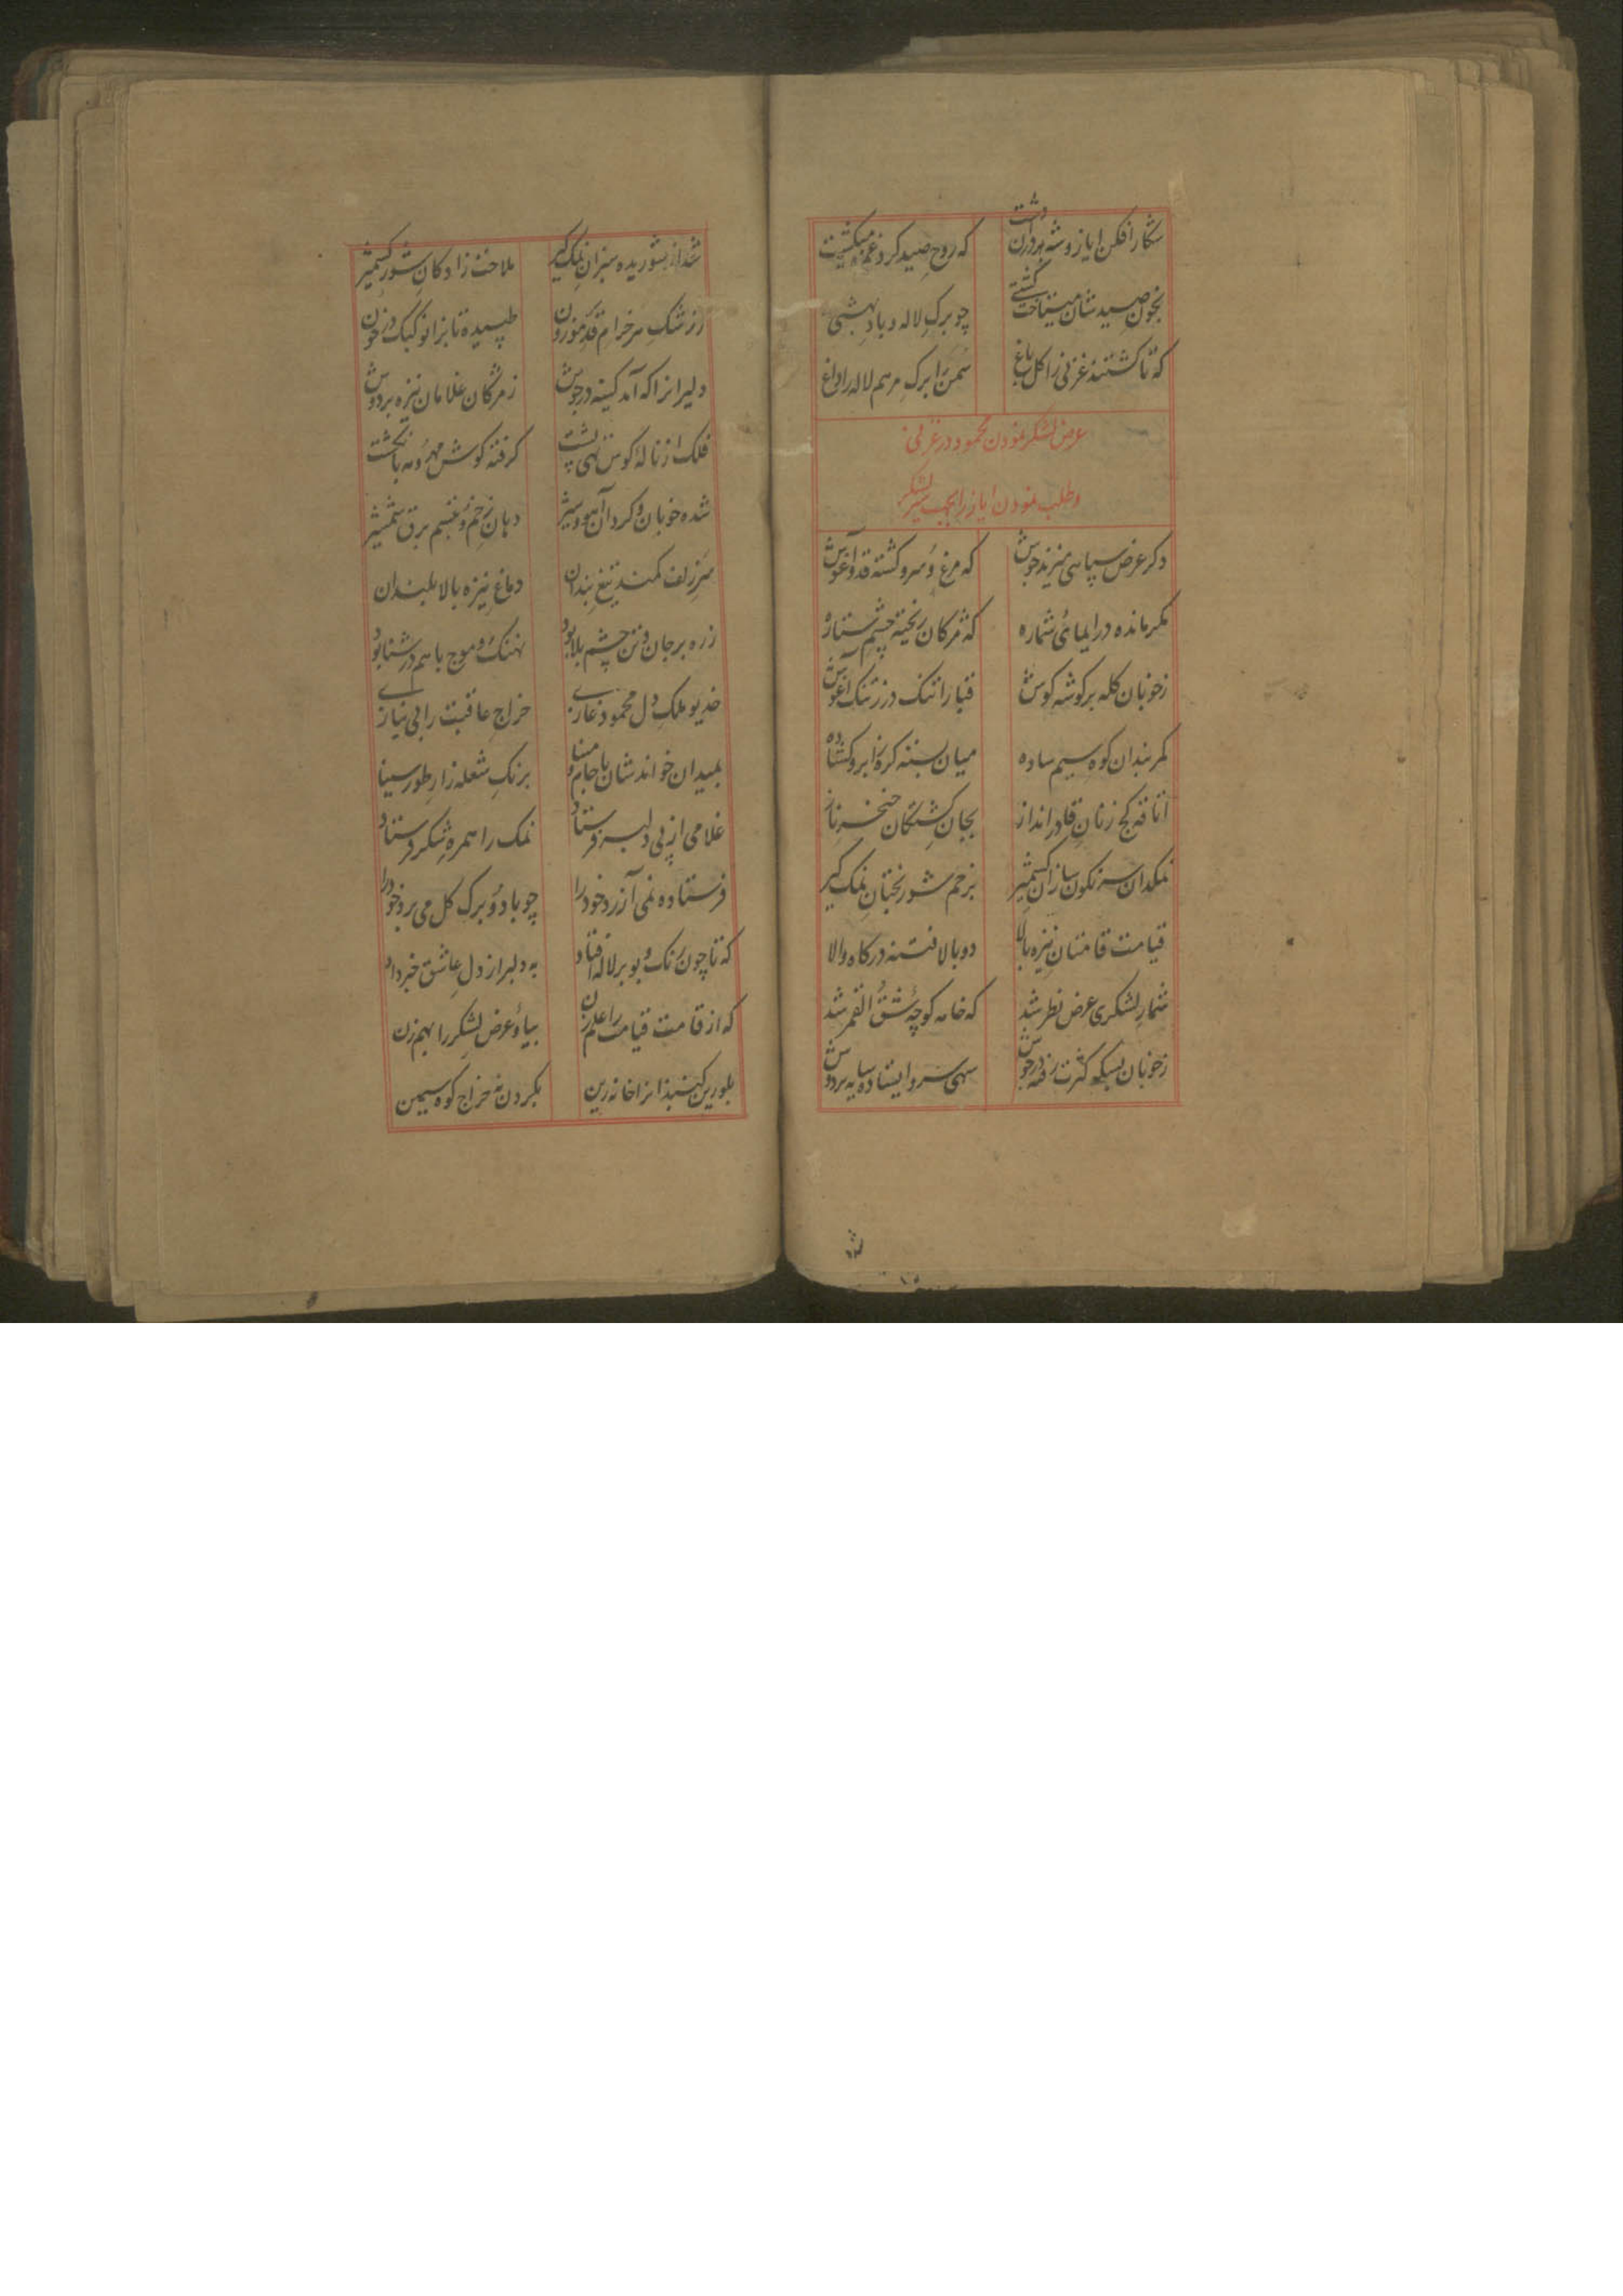 شکار افکن ایاز و شه در آن دشت
که روح صید کرد غم میگشت
بخون صید شان میتاخت گشتی
چو برک لاله و باد بهشتی
که تا گشتند غزنی را کل باغ
سمن را برک مرهم لاله را داغ
عرض لشکر نمودن محمود در غزنی
وطلب نمودن ایاز را بجهت سیر لشکر
دکر عرض سپاهی میزند جوش
که مرغ و سرو کشته قد و آغوش
مکر مانده در ایمای شماره
که مژکان ریخته چشم ستاره
زخوبان کله بر کوشه کوش
قبا را تنک در زتنک آغوش
کمر بندان کوه سیم ساده
میان بسته کره ز ابرو کشاده
اتاقه کج زنان قادر انداز
بجان کشتکان خنجر ناز
نمکدان سر نکون سازان کشمیر
بزخم شور بختان نمک گیر
قیامت قامتان نیزه بالا
دوبالا فتنه درکاه والا
شمار لشکری عرض نظر شد
که خامه کوچهٔ شق القمر شد
زخوبان بسکه کثرت رفته در جوش
سهی سرو ایستاده سایه بر دوش
شد از شوریده سبزان نمک گیر
ملاحت زاد کان شور کشمیر
زرشک سر خرام قد موزون
طپیده تا بزانو کبک در خون
دلیرانرا که آمد کینه در جوش
زمژکان غلامان نیزه بر دوش
فلک از نالهٔ کوس تهی پشت
کرفته کوش مهر و مه بانکشت
شده خوبان و کردان آهو و شیر
دهان زخم و تبسم برق شمشیر
سر زلف کمند تیغ بندان
دماغ نیزه بالا بلندان
زره بر جان و تن چشم بلا بود
نهنک و موج با هم در شنا بود
خدیو ملک دل محمود غازی
خراج عاقبت را بی نیازی
بمیدان خواند شان با جام و مینا
برنک شعله زار طور سینا
غلامی از پی دلبر فرستاد
نمک را همره شکر فرستاد
فرستاده نمی آزرد خود را
چو باد و برک کل می برد خود را
که تا چون رنک و بو بر لاله افتاد
به دلبر از دل عاشق خبر داد
که از قامت قیامت را علم زن
بیا و عرض لشکر را بهم زن
بلورین کنبذانرا خانه زین
بکردن نه خراج کوه سیمین